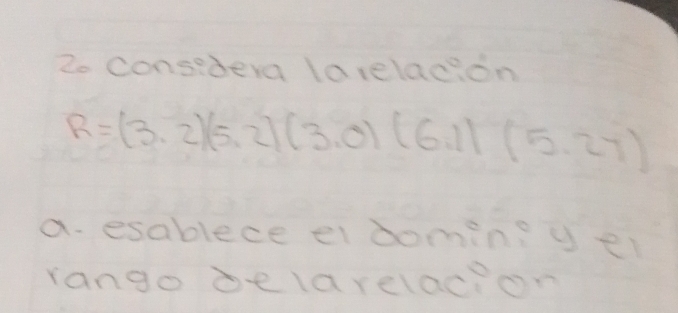 2. considera la relación
R=(3.2)(5.2)(3.0)(6.1)(5.27)
a. esablece el domini y el
rango de la relacion